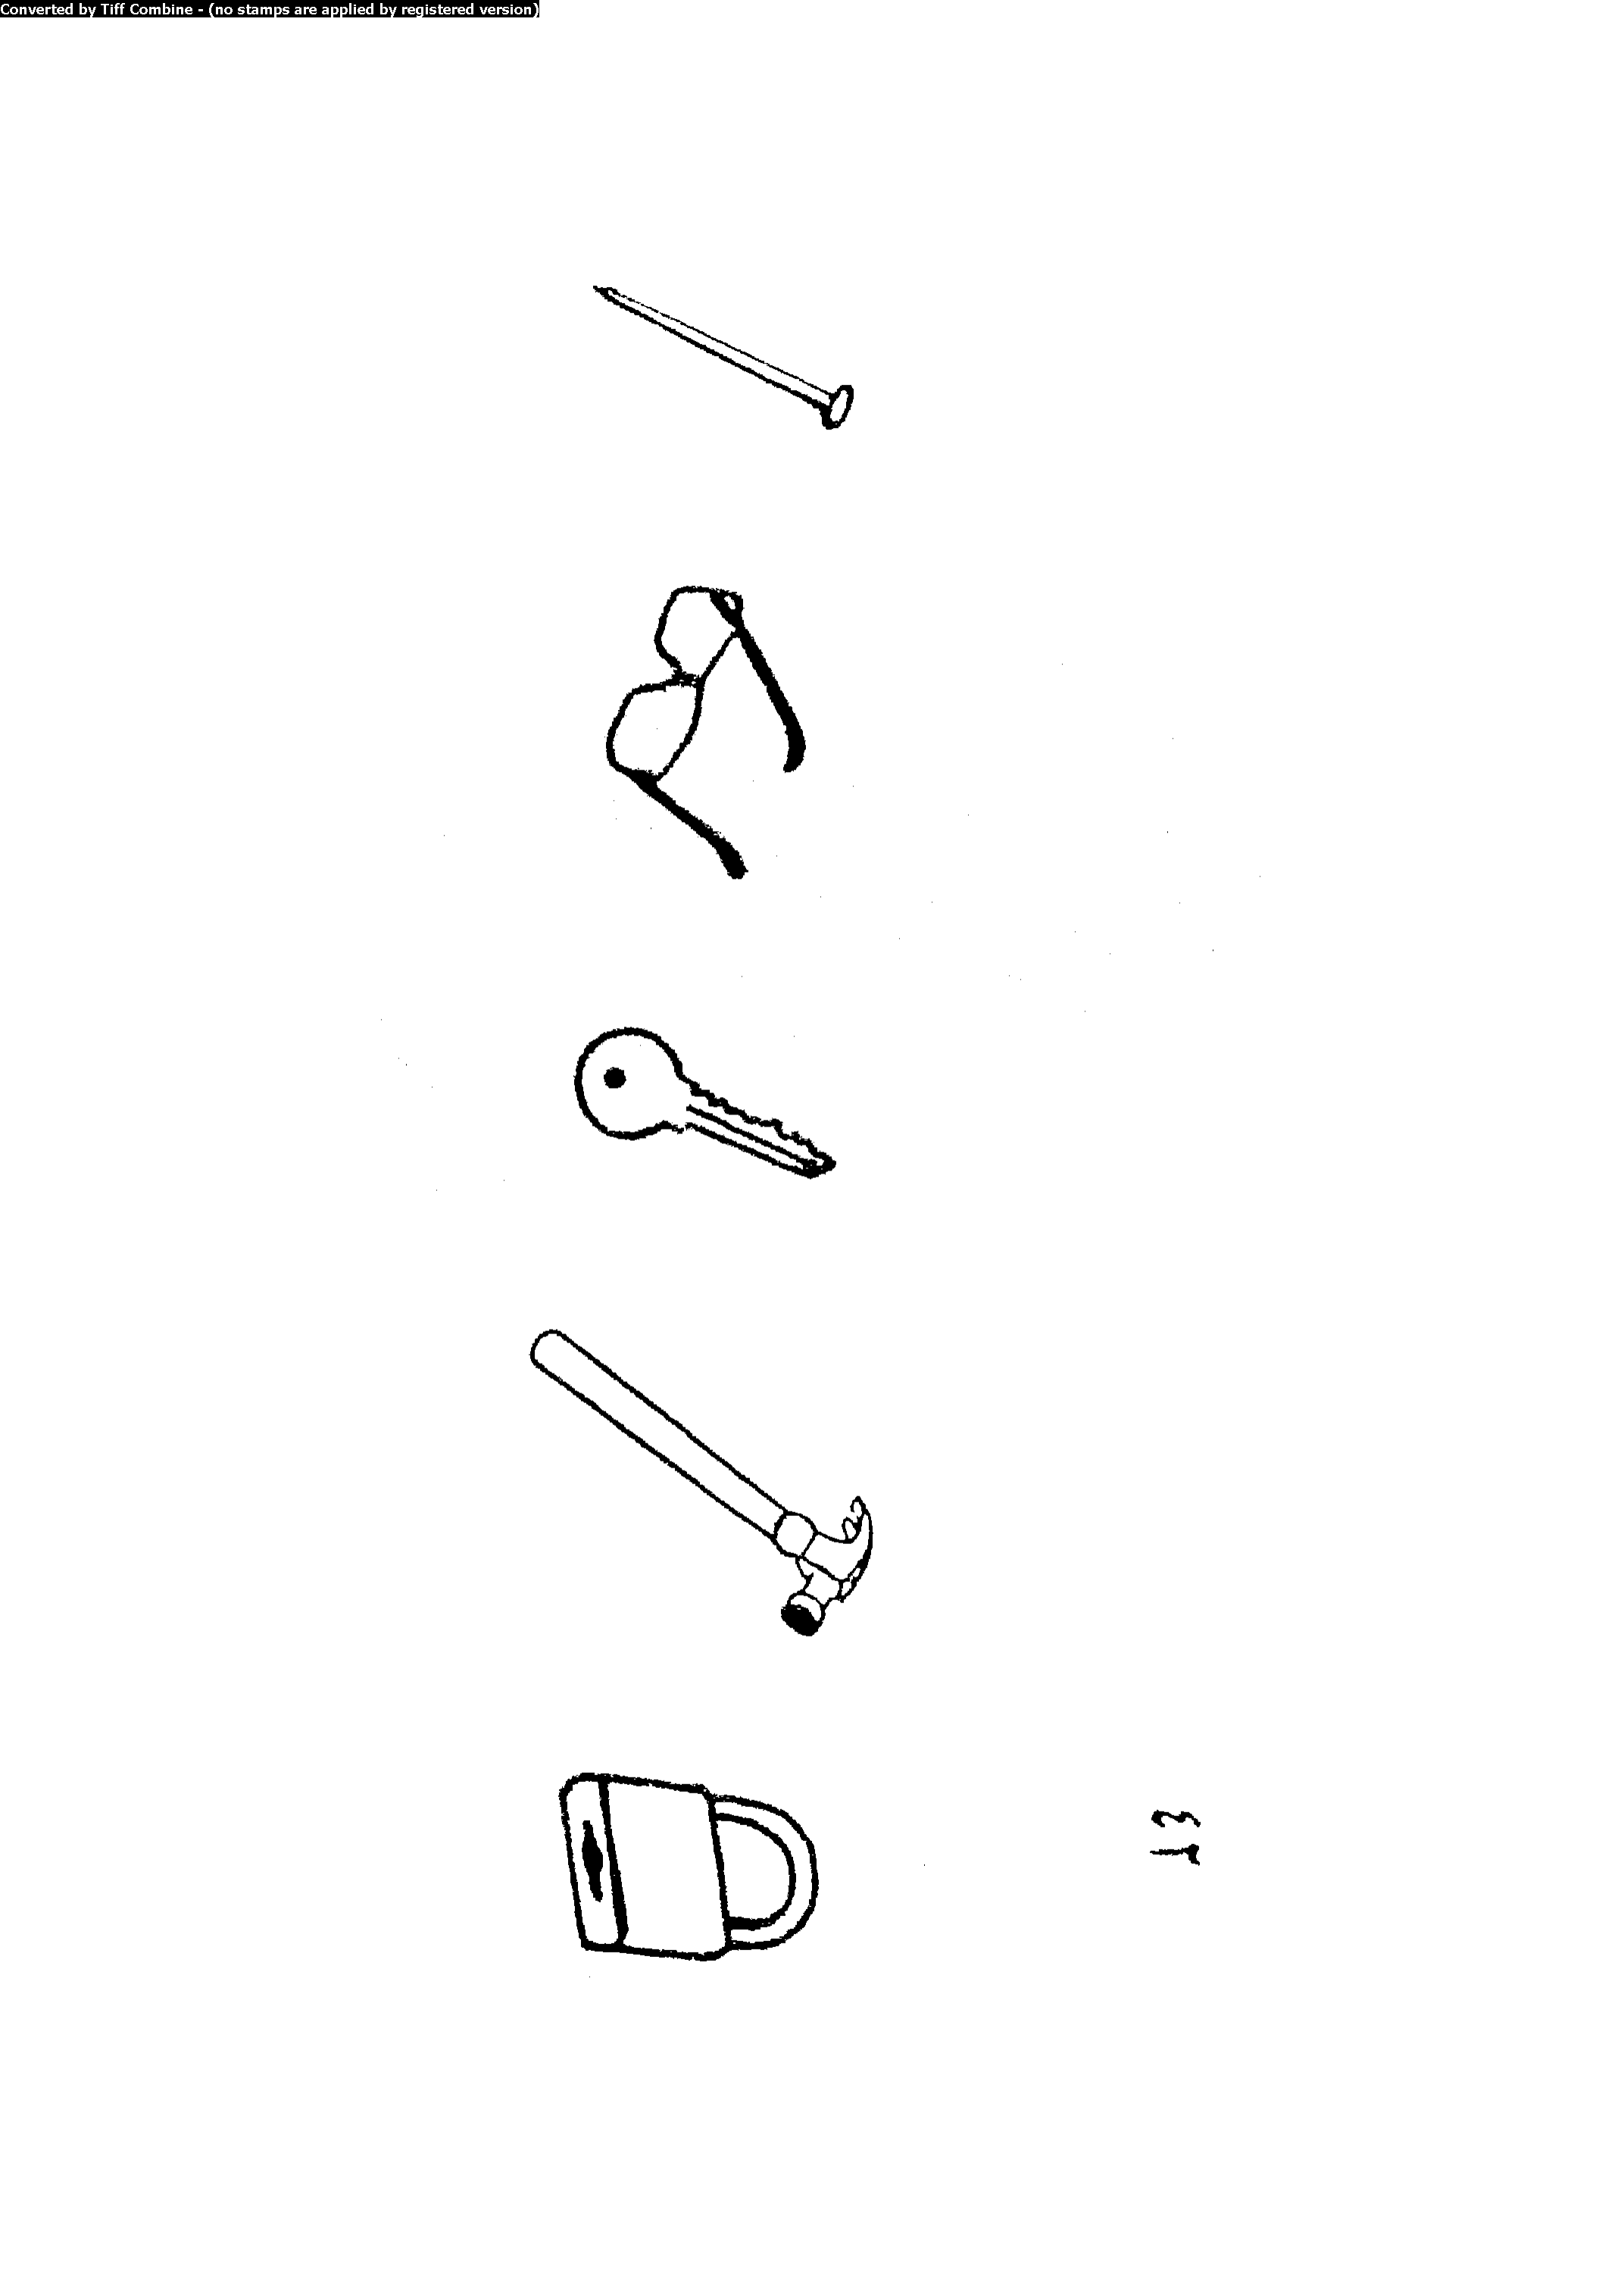 Converted by Tiff Combine - (no stamps are applied by registered version)
13